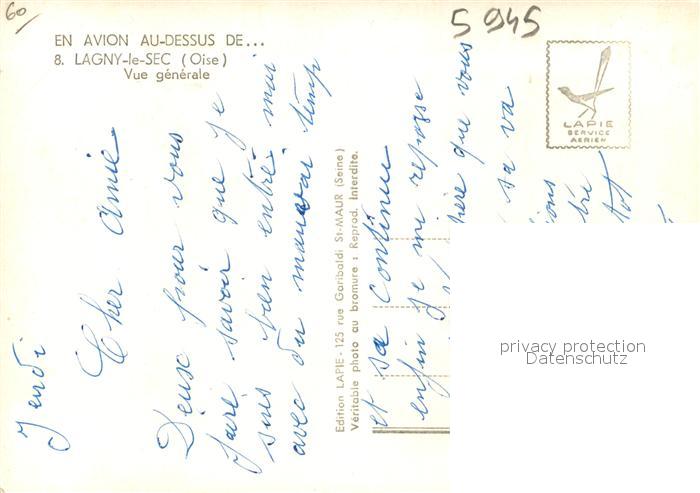 60
5945
EN AVION AU-DESSUS DE...
8. LAGNY-le-SEC (Oise)
Vue générale
LAPIE
SERVICE
AERIEN
Jeudi
Cher Amie
Deux pour vous
faire savoir que je
suis bien entré mai
avec du mauvai temp
Edition LAPIE - 125 rue Garibaldi St-MAUR (Seine)
Véritable photo au bromure : Reprod. Interdite.
et sa continue
enfin je mi repose
que vous
sa va
privacy protection
Datenschutz